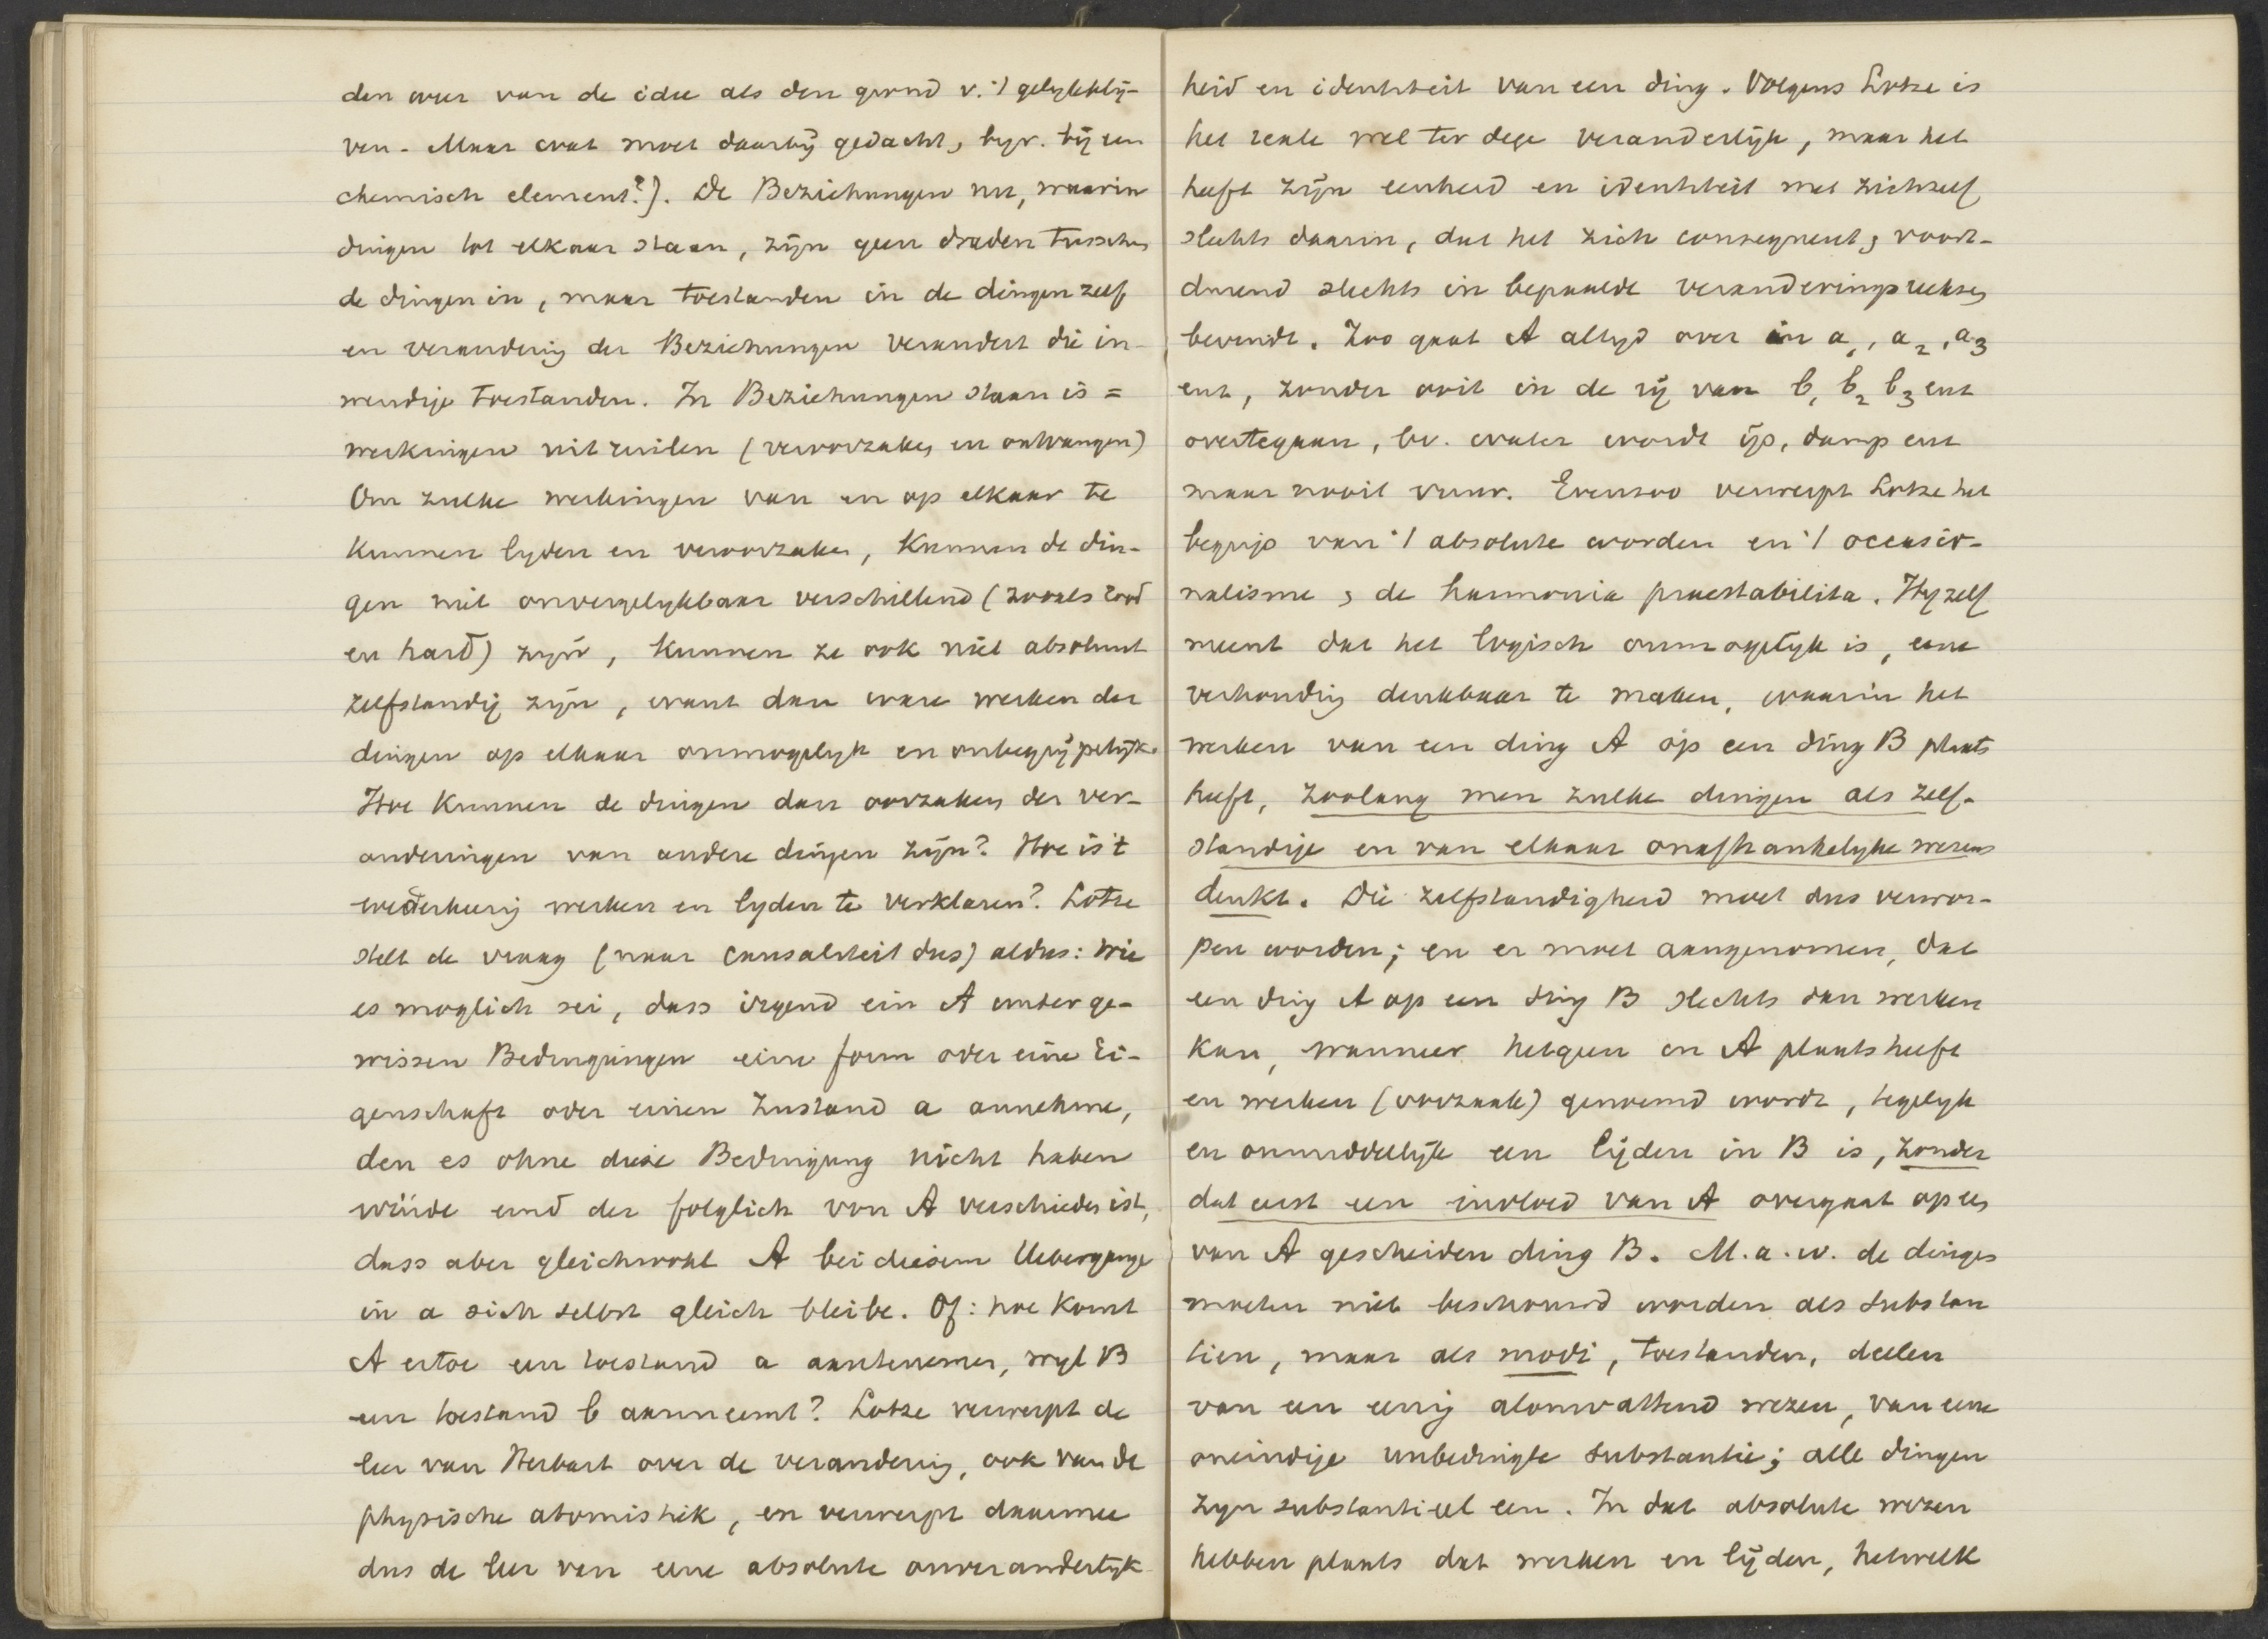 den over van de idee als den grond v. 't gelykbly-
ven. Maar wat moet daarbij gedacht, byv. bij een
chemisch element?). De Beziehungen nu, waarin
dingen tot elkaar staan, zijn geen draden tusschen
de dingen in, maar toestanden in de dingen zelf
en verandering der Beziehungen verandert die in-
wendige toestanden. In Beziehungen staan is =
werkingen uitruilen (veroorzaken en ontvangen)
Om zulke werkingen van en op elkaar te
kunnen lyden en veroorzaken, kunnen de din-
gen niet onvergelykbaar verschillend (zooals rood
en hard) zijn, kunnen ze ook niet absoluut
zelfstandig zijn, want dan ware werken der
dingen op elkaar onmogelyk en onbegrijpelijk.
Hoe kunnen de dingen dan oorzaken der ver-
anderingen van andere dingen zijn? Hoe is 't
wederkeerig werken en lyden te verklaren? Lotze
stelt de vraag (naar causaliteit dus) aldus: wie
es moglich sei, dass irgend ein A unter ge-
wissen Bedingungen eine form oder eine Ei-
genschaft oder einen Zustand a annehme,
den es ohne diese Bedingung nicht haben
würde und der folglich von A verschieden ist,
dass aber gleichwohl A bei diesem Uebergange
in a sich selbst gleich bleibe. Of: hoe komt
A ertoe een toestand a aantenemen, wyl B
een toestand b aanneemt? Lotze verwerpt de
leer van Herbart over de verandering, ook van de
physische atomistiek, en verwerpt daarmee
dus de leer van eene absolute onveranderlijk-
heid en identiteit van een ding. Volgens Lotze is
het reale wel ter dege veranderlijk, maar het
heeft zijn eenheid en identiteit met zichzelf
slechts daarin, dat het zich consequent, voort-
durend slechts in bepaalde veranderingsreeksen
beweegt. Zoo gaat A altyd over in a₁, a₂, a₃
enz, zonder ooit in de rij van b₁ b₂ b₃ enz
overtegaan, bv. water wordt ijs, damp enz
maar nooit vuur. Evenzoo verwerpt Lotze het
begrip van 't absolute worden en 't occasio-
nalisme, de harmonia praestabilita. Hyzelf
meent dat het logisch onmogelijk is, eene
verhouding denkbaar te maken, waarin het
werken van een ding A op een ding B plaats
heeft, zoolang men zulke dingen als zelf-
standige en van elkaar onafhankelyke wezens
denkt. Die zelfstandigheid moet dus verwor-
pen worden; en er moet aangenomen, dat
een ding A op een ding B slechts dan werken
kan, wanneer hetgeen in A plaats heeft
en werken (oorzaak) genoemd wordt, tegelyk
en onmiddellijk een lijden in B is, zonder
dat eerst een invloed van A overgaat op een
van A gescheiden ding B. M.a.w. de dingen
moeten niet beschouwd worden als substan
tien, maar als modi, toestanden, deelen
van een eenig alomvattend wezen, van eene
oneindige unbedingte substantie; alle dingen
zyn substantieel een. In dat absolute wezen
hebben plaats dat werken en lijden, hetwelk